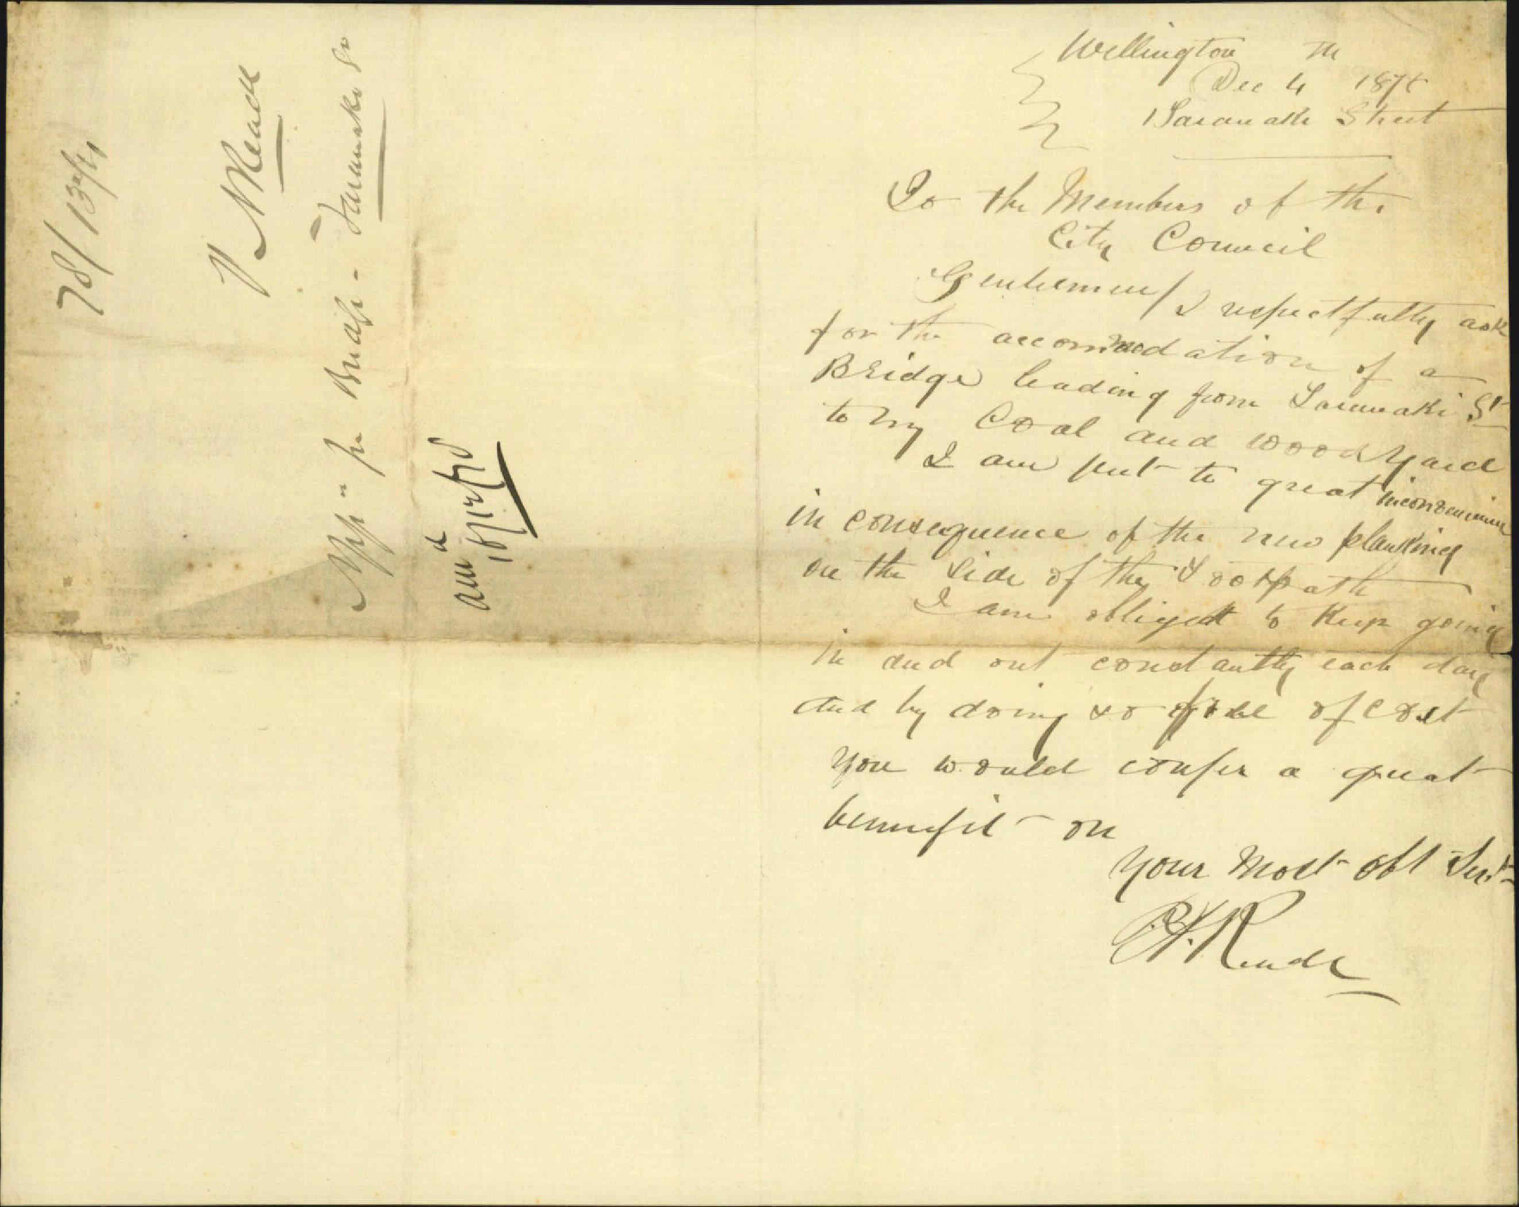 Wellington
Dec 4 187
Taranaki Street
To the Members of the
City Council
Gentlemen/ I respectfully ask
for the accommodation of a
Bridge leading from Taranaki St
to my Coal and wood yard
I am put to great
in consequence of the new planking
on the side of the Footpath
I am obliged to Keep going
in and out constantly each day
and by doing so free of cost
you would confer a great
bennefit on
your most obt Servt
Reade
78/13
Reade
App for Bridge - Taranaki St